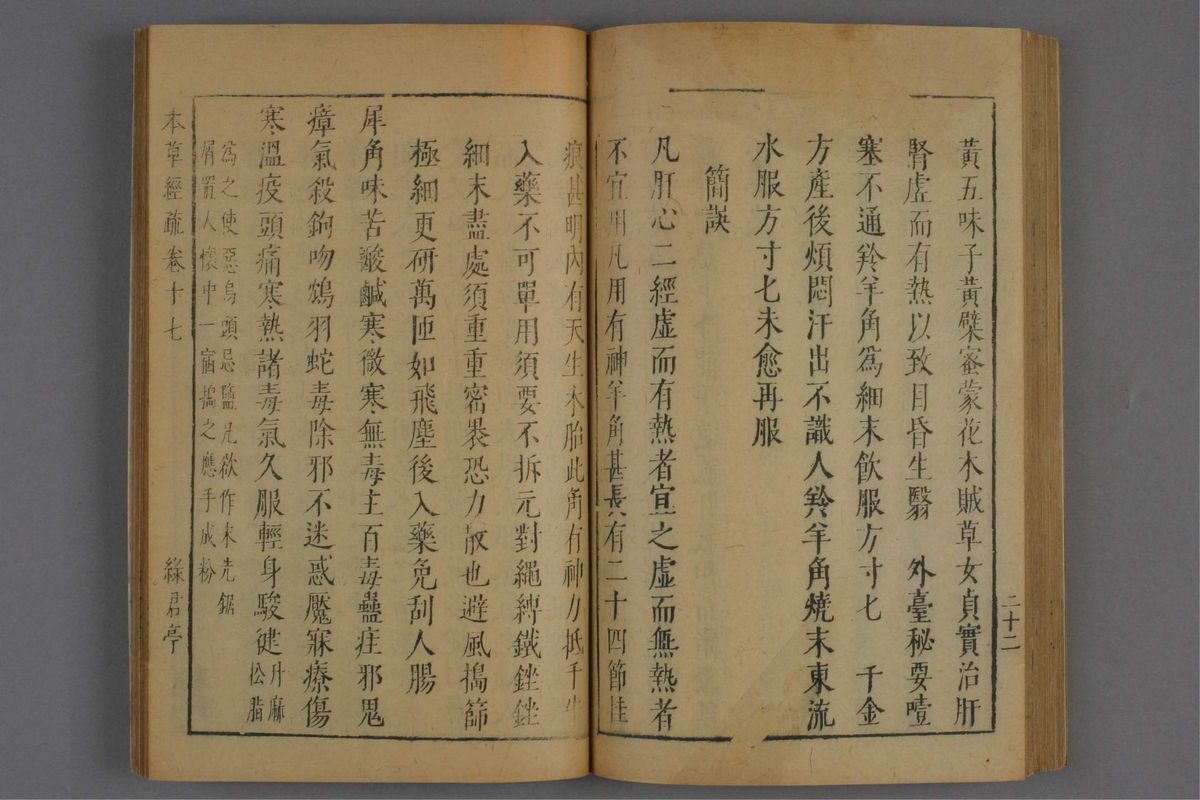 黃五味子黃檗蜜蒙花木賊草女貞實治肝
腎虛而有熱以致目昏生翳　外臺秘要噎
塞不通羚羊角爲細末飲服方寸匕　千金
方產後煩悶汗出不識人羚羊角燒末東流
水服方寸匕未愈再服
簡誤
凡肝心二經虛而有熱者宜之虛而無熱者
不宜用凡用有神羊角甚長有二十四節挂
痕甚明內有天生木胎此角有神力抵千牛
入藥不可單用須要不拆元對繩縛鐵銼銼
細末盡處須重重密裹恐力散也避風搗篩
極細更研萬匝如飛塵後入藥免刮人腸
犀角味苦酸鹹寒微寒無毒主百毒蠱疰邪鬼
瘴氣殺鉤吻鴆羽蛇毒除邪不迷惑魘寐療傷
寒溫疫頭痛寒熱諸毒氣久服輕身駿健升麻
松脂
爲之使惡烏頭忌鹽凡欲作末先鋸
屑置人懷中一宿搗之應手成粉
本草經疏　卷十七　綠君亭
二十二